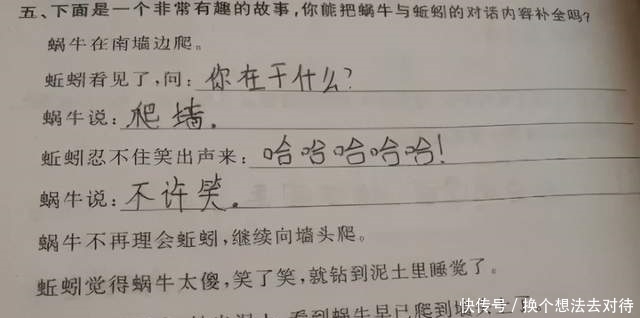 五、下面是一个非常有趣的故事,你能把蜗牛与蚯蚓的对话内容补全吗?
蜗牛在南墙边爬。
蚯蚓看见了,问: 你在干什么?
蜗牛说: 爬墙.
蚯蚓忍不住笑出声来: 哈哈哈哈哈!
蜗牛说: 不许笑。
蜗牛不再理会蚯蚓,继续向墙头爬。
蚯蚓觉得蜗牛太傻,笑了笑,就钻到泥土里睡觉了。
看到蜗牛早已爬到墙
快传号/换个想法去对待